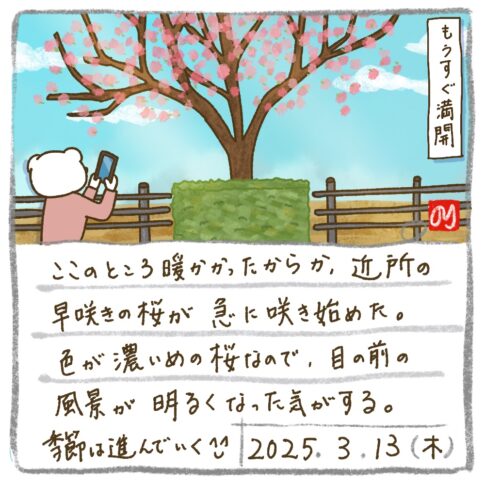 もうすぐ満開
ここのところ暖かかったからか、近所の
早咲きの桜が急に咲き始めた。
色が濃いめの桜なので、目の前の
風景が明るくなった気がする。
季節は進んでいく
2025.3.13(木)